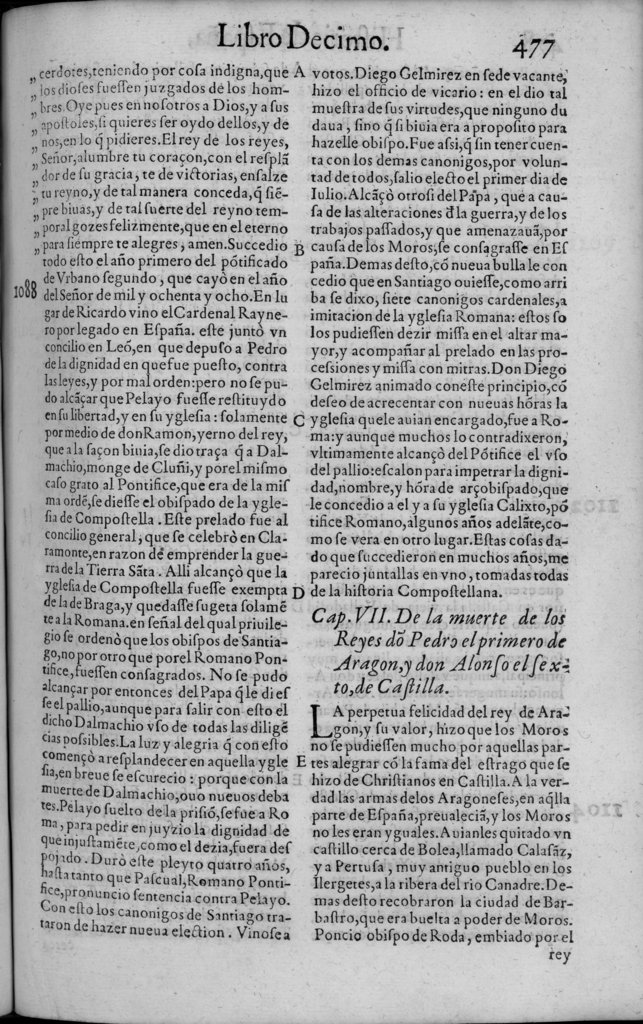 Libro Decimo. 477
„ cerdotes,teniendo por cosa indigna,que
„ los dioses fuessen juzgados de los hom-
„ bres.Oye pues en nosotros a Dios,y a sus
„ apostoles,si quieres ser oydo dellos,y de
„ nos,en lo q̃ pidieres.El rey de los reyes,
„ Señor,alumbre tu coraçon,con el resplã
„ dor de su gracia, te de victorias, ensalze
„ tu reyno,y de tal manera conceda,q̃ siẽ-
„ pre biuas,y de tal suerte del reyno tem-
„ poral gozes felizmente,que en el eterno
„ para siempre te alegres, amen.Succedio
todo esto el año primero del põtificado
de Vrbano segundo, que cayò en el año
1088 del Señor de mil y ochenta y ocho.En lu
gar de Ricardo vino el Cardenal Rayne-
ro por legado en España. este juntò vn
concilio en Leõ,en que depuso a Pedro
de la dignidad en que fue puesto, contra
las leyes,y por mal orden:pero no se pu-
do alcãçar que Pelayo fuesse restituydo
en su libertad,y en su yglesia: solamente
por medio de don Ramon,yerno del rey,
que a la saçon biuia,se dio traça q̃ a Dal-
machio,monge de Cluñi, y por el mismo
caso grato al Pontifice,que era de la mis
ma ordẽ,se diesse el obispado de la ygle-
sia de Compostella. Este prelado fue al
concilio general, que se celebrò en Cla-
ramonte,en razon de emprender la gue-
rra de la Tierra Sãta. Alli alcançò que la
yglesia de Compostella fuesse exempta
de la de Braga,y quedasse sugeta solamẽ
te a la Romana.en señal del qual priuile-
gio se ordenò que los obispos de Santia-
go,no por otro que por el Romano Pon-
tifice,fuessen consagrados. No se pudo
alcançar por entonces del Papa q̃ le dies
se el pallio,aunque para salir con esto el
dicho Dalmachio vso de todas las diligẽ
cias possibles.La luz y alegria q̃ con esto
començò a resplandecer en aquella ygle
sia,en breue se escurecio: porque con la
muerte de Dalmachio,ouo nueuos deba
tes.Pelayo suelto de la prisiõ,se fue a Ro
ma, para pedir en juyzio la dignidad de
que injustamẽte,como el dezia,fuera des
pojado. Durò este pleyto quatro años,
hasta tanto que Pascual,Romano Ponti-
fice,pronuncio sentencia contra Pelayo.
Con esto los canonigos de Santiago tra-
taron de hazer nueua election. Vinose a
A votos.Diego Gelmirez en sede vacante,
hizo el officio de vicario: en el dio tal
muestra de sus virtudes,que ninguno du
daua, sino q̃ si biuia era a proposito para
hazelle obispo.Fue assi,q̃ sin tener cuen-
ta con los demas canonigos,por volun-
tad de todos,salio electo el primer dia de
Iulio.Alcãçò otrosi del Papa, que a cau-
sa de las alteraciones d̃ la guerra,y de los
trabajos passados,y que amenazauã,por
B causa de los Moros,se consagrasse en Es
paña.Demas desto,cõ nueua bulla le con
cedio que en Santiago ouiesse,como arri
ba se dixo, siete canonigos cardenales,a
imitacion de la yglesia Romana: estos so
los pudiessen dezir missa en el altar ma-
yor,y acompañar al prelado en las pro-
cessiones y missa con mitras.Don Diego
Gelmirez animado con este principio,cõ
deseo de acrecentar con nueuas hõras la
C yglesia que le auian encargado,fue a Ro-
ma:y aunque muchos lo contradixeron,
vltimamente alcançò del Põtifice el vso
del pallio:escalon para impetrar la digni-
dad,nombre,y hõra de arçobispado,que
le concedio a el y a su yglesia Calixto,põ
tifice Romano,algunos años adelãte,co-
mo se vera en otro lugar.Estas cosas da-
do que succedieron en muchos años,me
parecio juntallas en vno, tomadas todas
D de la historia Compostellana.
Cap. VII. De la muerte de los
Reyes dõ Pedro el primero de
Aragon,y don Alonso el sex-
to,de Castilla.
LA perpetua felicidad del rey de Ara-
gon,y su valor, hizo que los Moros
no se pudiessen mucho por aquellas par-
E tes alegrar cõ la fama del estrago que se
hizo de Christianos en Castilla.A la ver-
dad las armas delos Aragoneses,en aq̃lla
parte de España,preualeciã,y los Moros
no les eran yguales.Auianles quitado vn
castillo cerca de Bolea,llamado Calasãz,
y a Pertusa, muy antiguo pueblo en los
Ilergetes,a la ribera del rio Canadre.De-
mas desto recobraron la ciudad de Bar-
bastro,que era buelta a poder de Moros.
Poncio obispo de Roda, embiado por el
rey